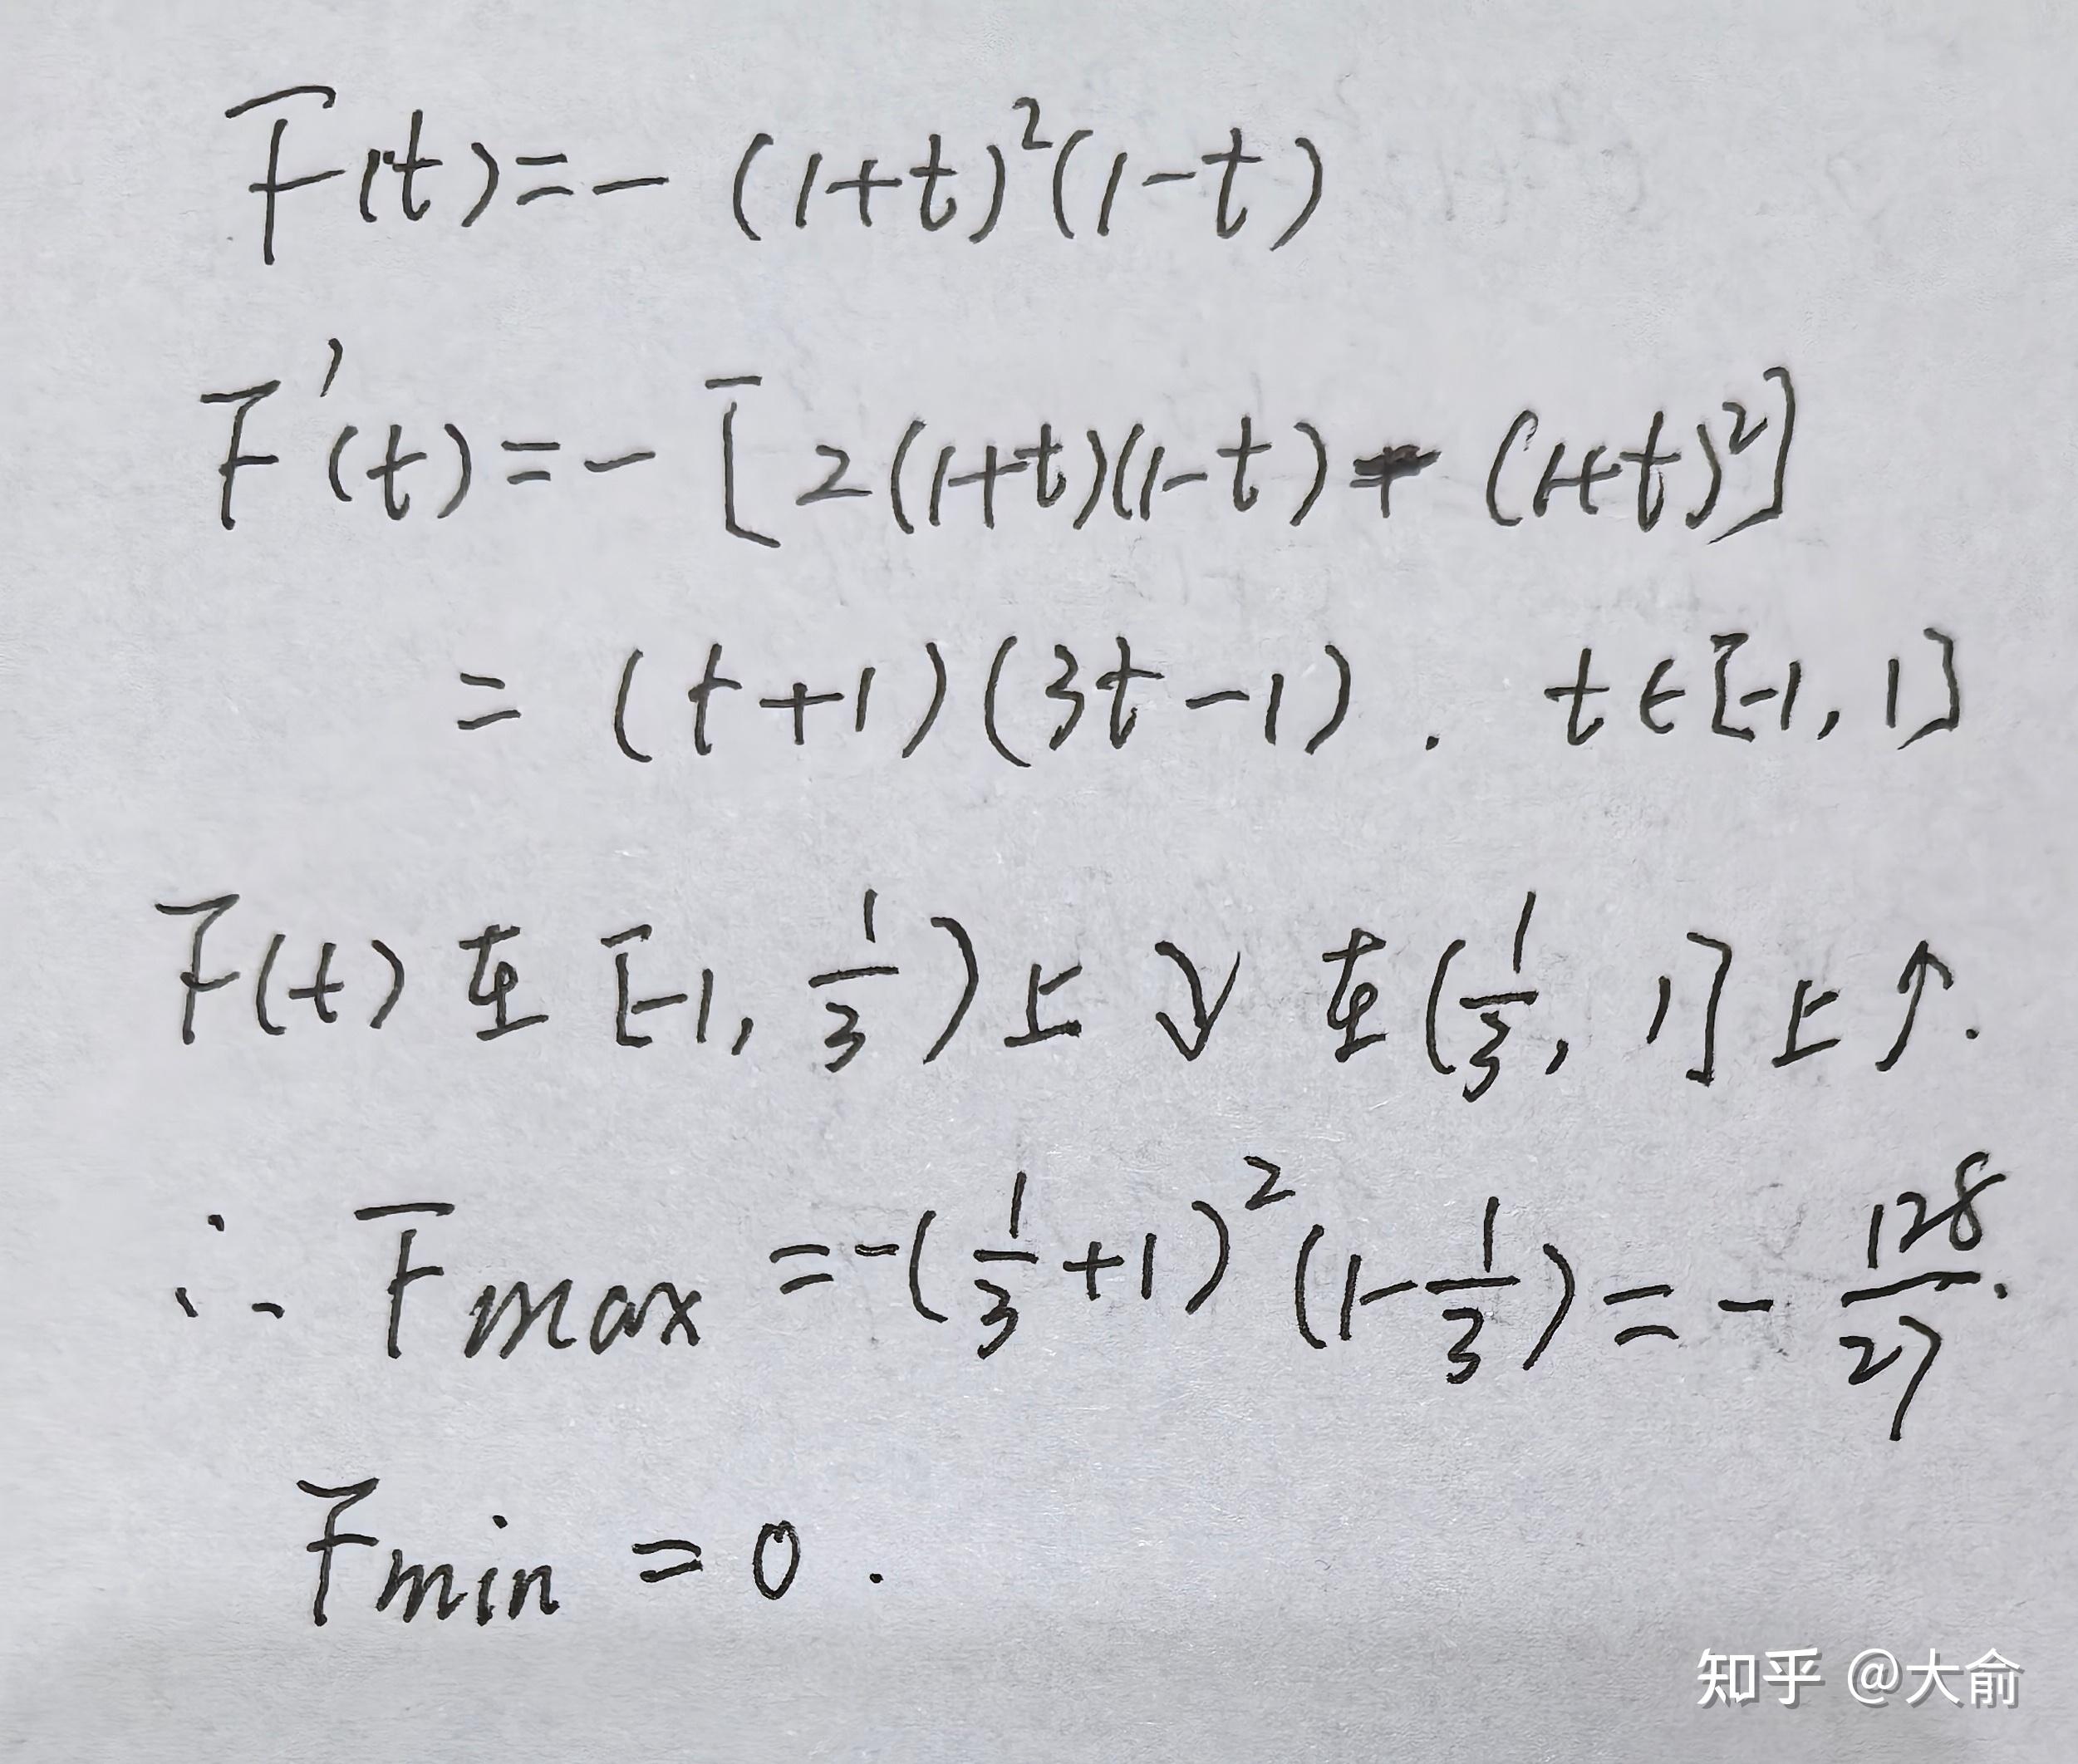 F(t)=-(1+t)²(1-t)
F'(t)=-[2(1+t)(1-t)-(1+t)²]
=(t+1)(3t-1). t∈[-1,1]
F(t)在[-1,1/3)上↓在(1/3,1]上↑.
∴ Fmax=-(1/3+1)²(1-1/3)=-128/27.
Fmin=0.
知乎 @大俞